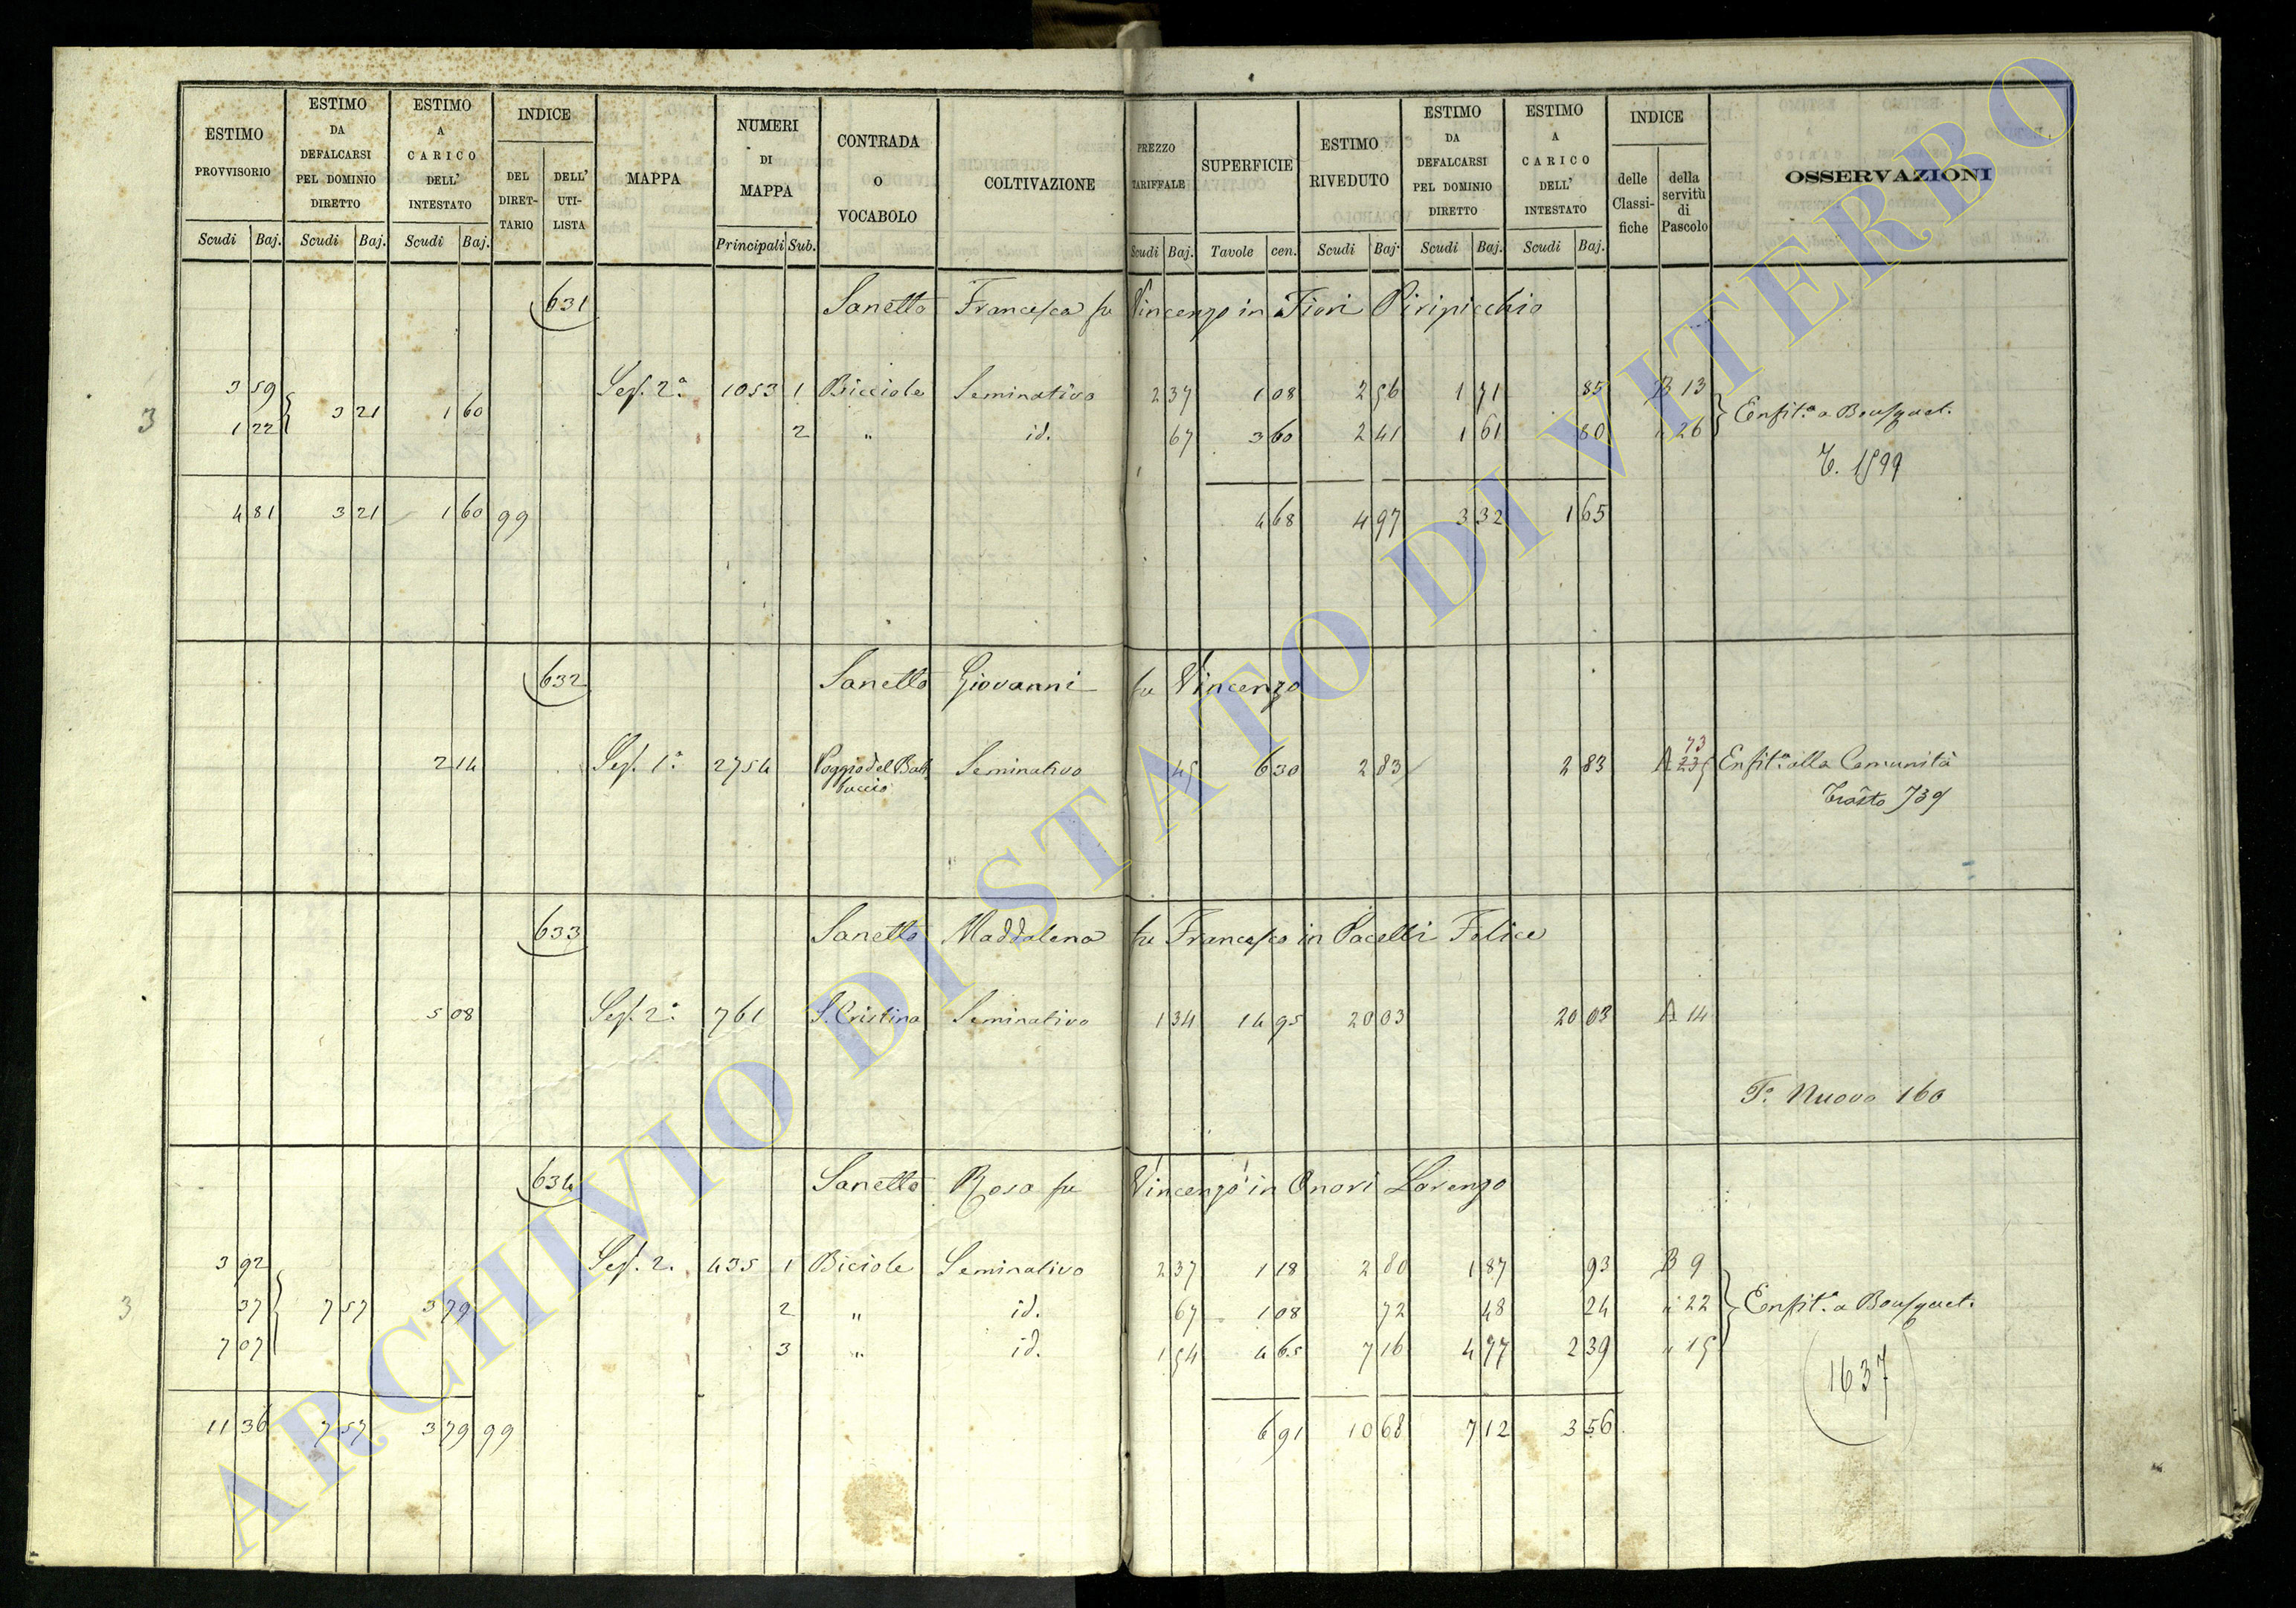 ESTIMO PROVVISORIO
ESTIMO DA DEFALCARSI PEL DOMINIO DIRETTO
ESTIMO A CARICO DELL' INTESTATO
INDICE
DEL DIRET-TARIO
DELL' UTI-LISTA
MAPPA
NUMERI DI MAPPA
CONTRADA O VOCABOLO
COLTIVAZIONE
PREZZO TARIFFALE
SUPERFICIE
ESTIMO RIVEDUTO
ESTIMO DA DEFALCARSI PEL DOMINIO DIRETTO
ESTIMO A CARICO DELL' INTESTATO
INDICE
delle Classi-fiche
della servitù di Pascolo
OSSERVAZIONI
Scudi Baj. Scudi Baj. Scudi Baj. Principali Sub. Scudi Baj. Tavole cen. Scudi Baj. Scudi Baj. Scudi Baj.
631 Sanetto Francesca fu Vincenzo in Fiori Piripicchio
3 59 Sez. 2ª 1053 1 Bicciole Seminativo 2 37 1 08 2 56 1 71 85 B 13
3 3 21 1 60 Enfit.ª a Bousquet.
1 22 2 " id. 67 3 60 2 41 1 61 80 " 26
T. 1599
4 81 3 21 1 60 99 4 68 4 97 3 32 1 65
632 Sanetto Giovanni fu Vincenzo
73
2 14 Sez. 1ª 2754 Poggio del Bat- Seminativo 45 6 30 2 83 2 83 A 235 Enfit.ª alla Comunità
tuccio
Trasto 739
633 Sanetto Maddalena fu Francesco in Pacelli Felice
5 08 Sez. 2ª 761 S. Cristina Seminativo 1 34 14 95 20 03 20 03 A 14
T.º Nuovo 160
634 Sanetto Rosa fu Vincenzo in Onori Lorenzo
3 92 Sez. 2. 435 1 Biciole Seminativo 2 37 1 18 2 80 1 87 93 B 9
3 37 7 57 3 79 2 " id. 67 1 08 72 48 24 " 22 Enfit.ª a Bousquet.
7 07 3 " id. 1 54 4 65 7 16 4 77 2 39 " 15
(1637)
11 36 7 57 3 79 99 6 91 10 68 7 12 3 56
ARCHIVIO DI STATO DI VITERBO